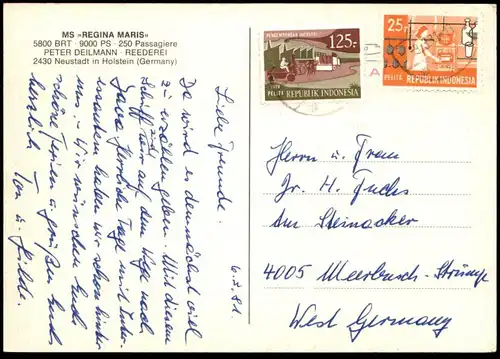 MS »REGINA MARIS«
5800 BRT · 9000 PS · 250 Passagiere
PETER DEILMANN · REEDEREI
2430 Neustadt in Holstein (Germany)
6.3.81.
Liebe Freunde.
Da wird es demnächst viel
zu erzählen geben. Mit diesem
Schiff sind wir auf dem Wege nach
Java. Herrliche Tage mit Inter-
essantem haben wir schon hinter
uns. – Wir wünschen Euch
schöne Ferien u. grüßen Euch
herzlich
125.-
PELITA REPUBLIK INDONESIA
25.-
PELITA REPUBLIK INDONESIA
Herrn u. Frau
Dr. H. Fuchs
Am Steinacker
4005 Meerbusch-Strümp
West Germany